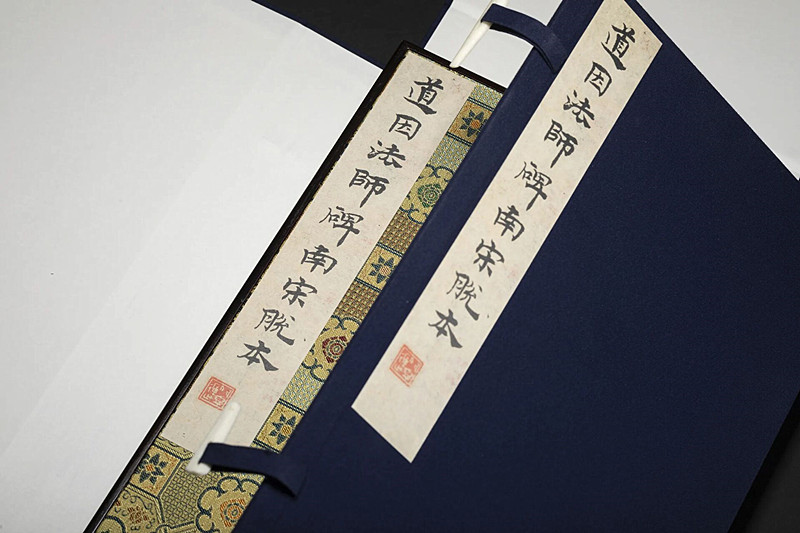 道因法師碑南宋脱本
道因法師碑南宋脱本